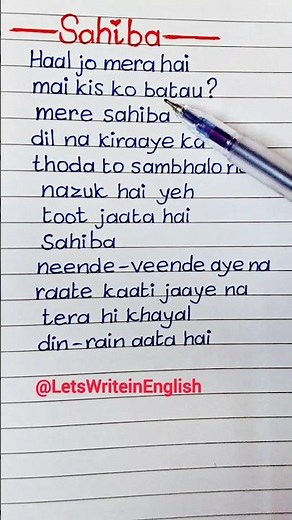 Sahiba
Haal jo mera hai
mai kis ko batau?
mere sahiba
dil na kiraaye ka
thoda to sambhalo
nazuk hai yeh
toot jaata hai
Sahiba
neende-veende aye na
raate kaati jaaye na
tera hi khayal
din-rain aata hai
@LetsWriteinEnglish